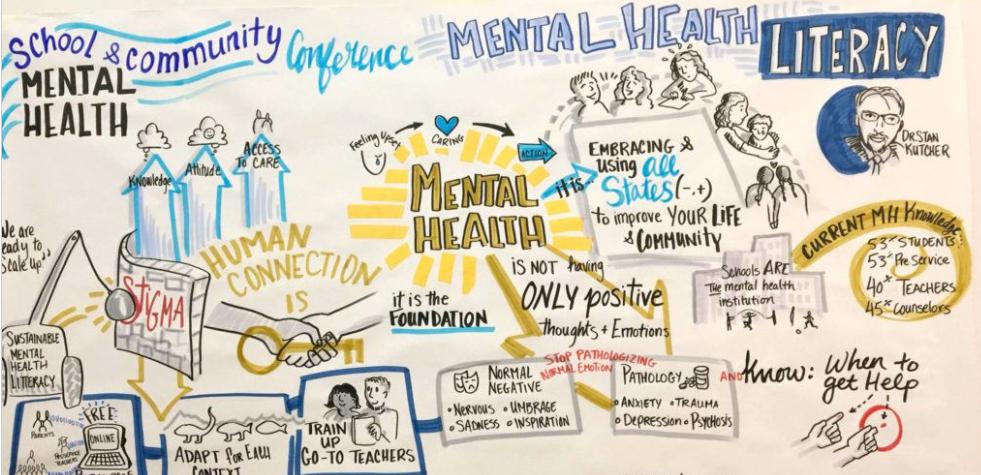 School & Community
Conference
MENTAL
HEALTH
MENTAL HEALTH
LITERACY
DR STAN
KUTCHER
Knowledge
Attitude
ACCESS
TO CARE
Feeling Upset
CARING
ACTION
MENTAL
HEALTH
it is...
EMBRACING &
using all
States (-,+)
to improve YOUR LIFE
& COMMUNITY
CURRENT MH Knowledge:
53% STUDENTS
53% Pre Service
40% TEACHERS
45% Counselors
We are
ready to
Scale Up"
STIGMA
HUMAN
CONNECTION
IS
it is the
FOUNDATION
IS NOT having
ONLY positive
thoughts + Emotions
Schools ARE
The mental health
institution
SUSTAINABLE
MENTAL
HEALTH
LITERACY
STOP PATHOLOGIZING
NORMAL EMOTION
NORMAL
NEGATIVE
• NERVOUS • UMBRAGE
• SADNESS • INSPIRATION
PATHOLOGY
• ANXIETY • TRAUMA
• DEPRESSION • PSYCHOSIS
AND Know:
When to
get Help
PARENTS
FREE
ONLINE
ADAPT for EACH
CONTEXT
TRAIN
UP
GO-TO TEACHERS